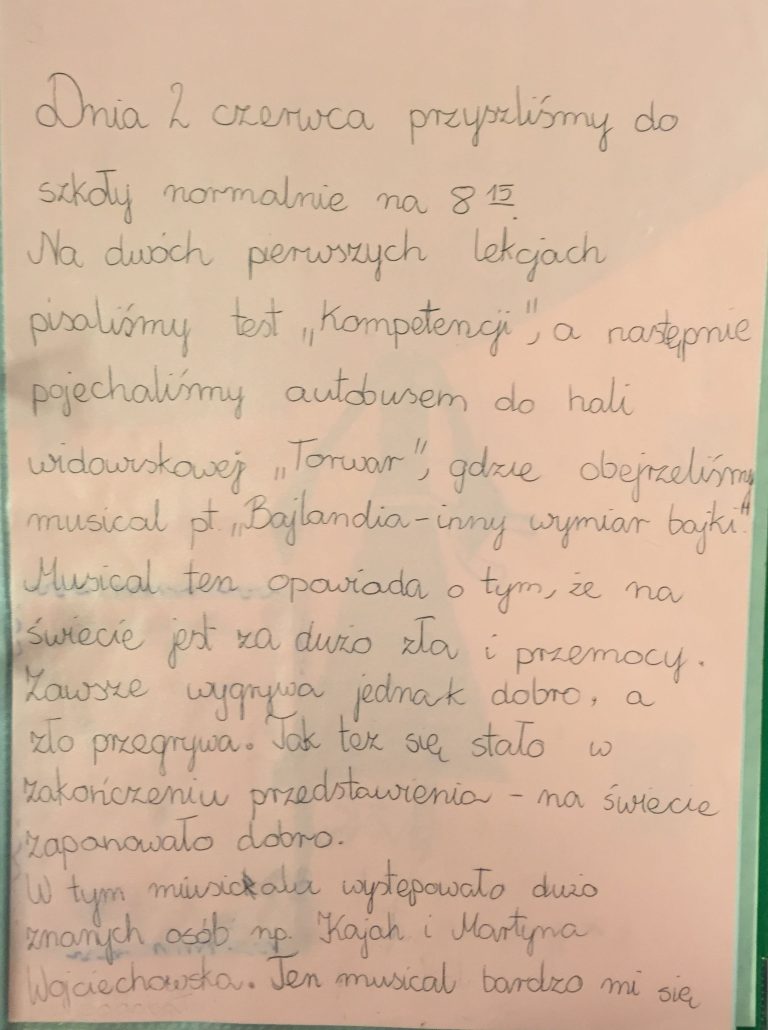 Dnia 2 czerwca przyszliśmy do
szkoły normalnie na 8 15.
Na dwóch pierwszych lekcjach
pisaliśmy test „Kompetencji", a następnie
pojechaliśmy autobusem do hali
widowskowej „Torwar", gdzie obejrzeliśmy
musical pt. „Bajlandia - inny wymiar bajki".
Musical ten opowiada o tym, że na
świecie jest za dużo zła i przemocy.
Zawsze wygrywa jednak dobro, a
zło przegrywa. Tak też się stało w
zakończeniu przedstawienia - na świecie
zapanowało dobro.
W tym występowało dużo
znanych osób np. Kajah i Martyna
Wojciechowska. Ten musical bardzo mi się